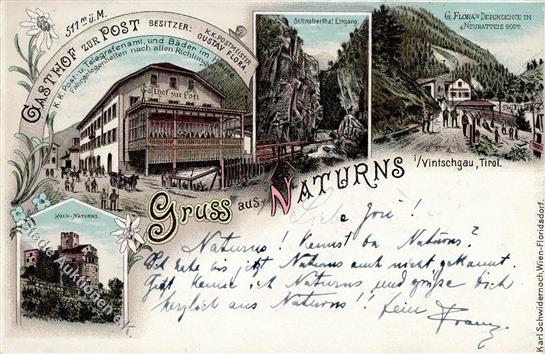 511 m ü. M.
GASTHOF ZUR POST
BESITZER:
K. K. POSTMEISTER
GUSTAV FLORA.
K. K. Post- u. Telegrafenamt, und Bäder im Hause.
Fahrgelegenheiten nach allen Richtungen.
Gasthof zur Post
Schnalserthal Eingang.
G. FLORA'S DEPENDENCE IN
NEURATTEIS 900m
i/Vintschgau, Tirol.
Gruss aus NATURNS
HOCH-NATURNS.
Liebe Josi!
Naturns! kennst du Naturns?
Ich habe bis jetzt Naturns auch nicht gekannt.
Jetzt kenne ich Naturns, und grüße dich
herzlich aus Naturns! Dein
Franz
Karl Schwidernoch, Wien-Floridsdorf.